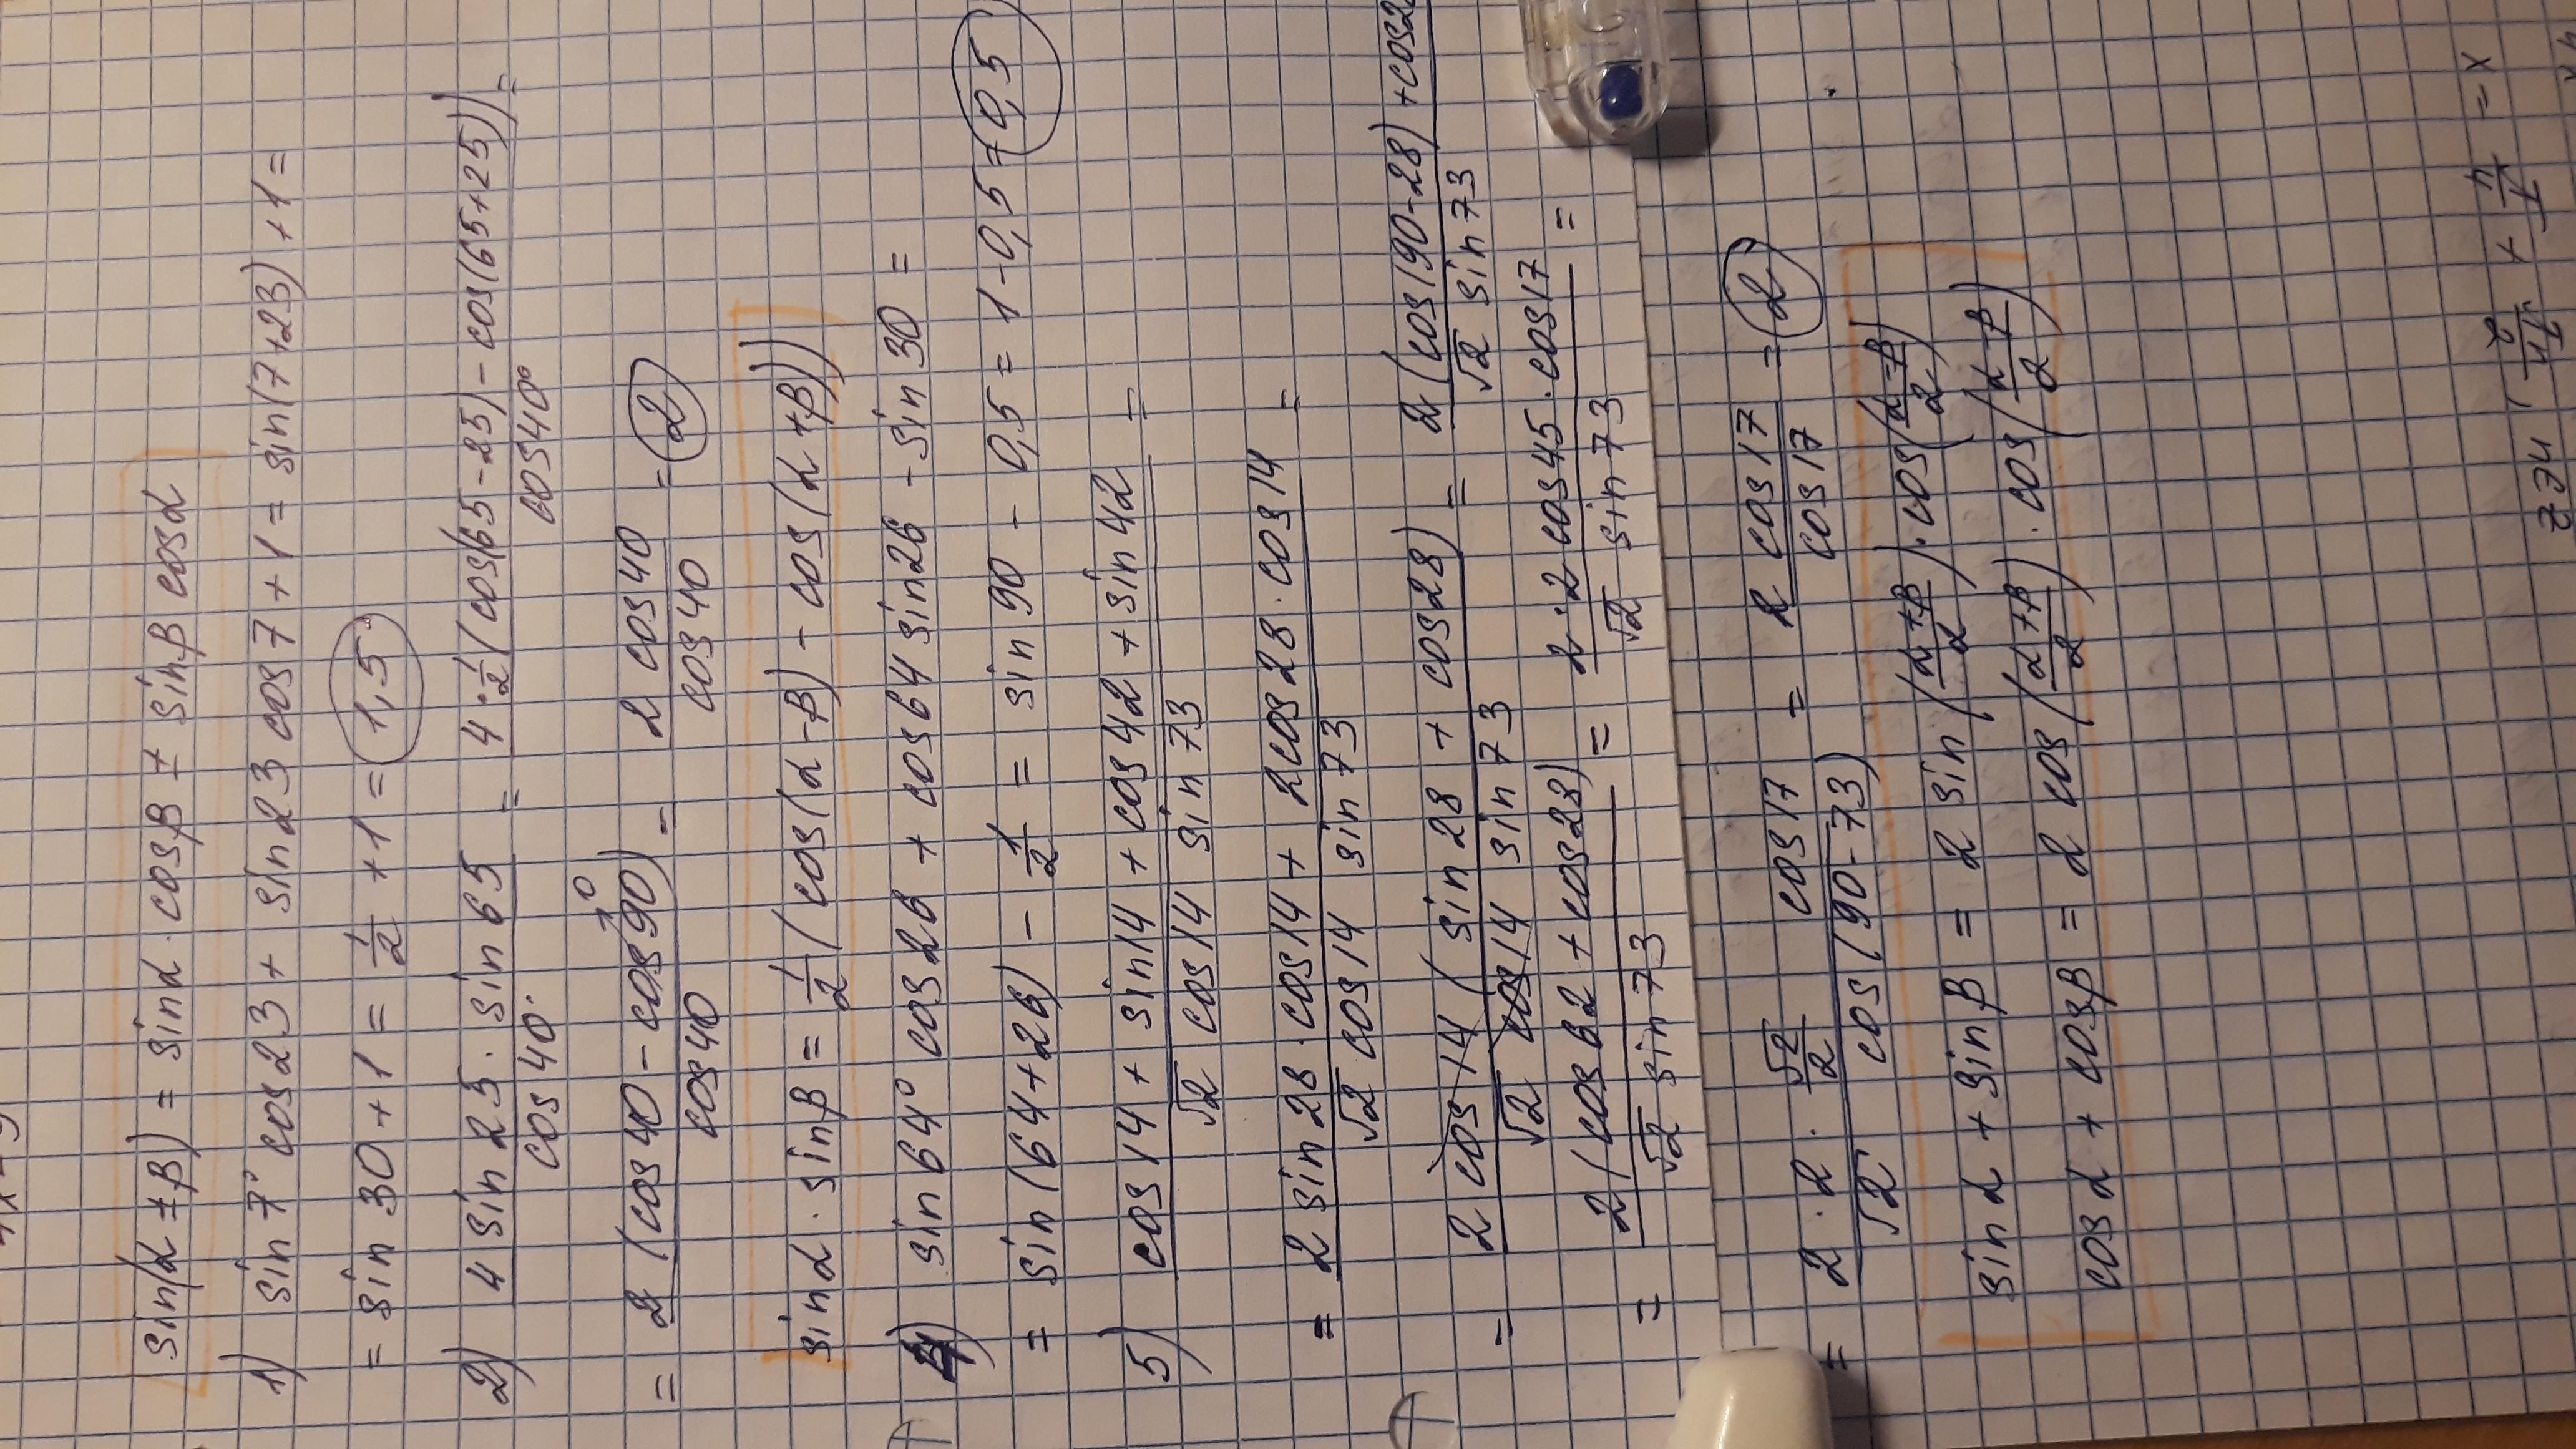 sin(α ± β) = sin α · cos β ± sin β cos α
1) sin 7° cos 23 + sin 23 cos 7 + 1 = sin(7+23) + 1 =
= sin 30 + 1 = 1/2 + 1 = 1,5
2) 4 sin 25 · sin 65 / cos 40° = 4 · 1/2 (cos(65-25) - cos(65+25)) / cos 40° =
= 2 (cos 40 - cos 90) / cos 40 = 2 cos 40 / cos 40 = 2
0
sin α · sin β = 1/2 (cos(α-β) - cos(α+β))
4) sin 64° cos 26 + cos 64 sin 26 - sin 30 =
= sin(64+26) - 1/2 = sin 90 - 0,5 = 1 - 0,5 = 0,5
5) cos 14 + sin 14 + cos 42 + sin 42 / √2 cos 14 sin 73 =
= 2 sin 28 · cos 14 + 2 cos 28 · cos 14 / √2 cos 14 sin 73 =
= 2 cos 14 (sin 28 + cos 28) / √2 cos 14 sin 73 = 2 (cos(90-28) + cos 2 / √2 sin 73
= 2 (cos 62 + cos 28) / √2 sin 73 = 2 · 2 cos 45 · cos 17 / √2 sin 73 =
= 2 · 2 · √2/2 cos 17 / √2 cos(90-73) = 2 cos 17 / cos 17 = 2
sin α + sin β = 2 sin (α+β / 2) · cos (α-β / 2)
cos α + cos β = 2 cos (α+β / 2) · cos (α-β / 2)
x = π/4 + πn/2, n∈Z